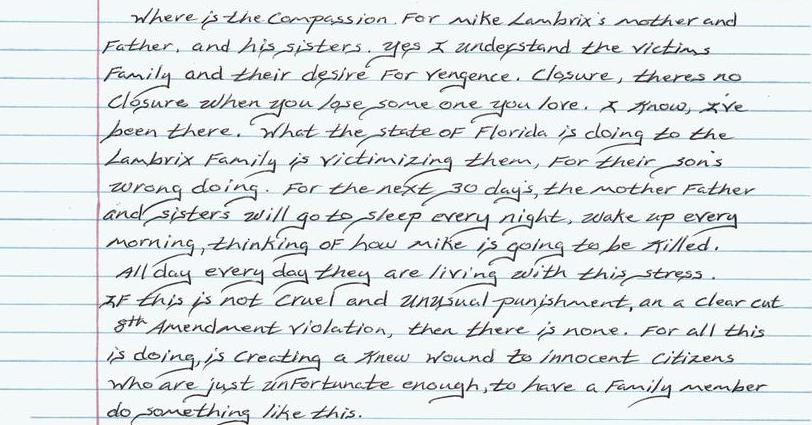 Where is the Compassion. For Mike Lambrix's mother and
Father, and his sisters. yes I understand the victims
Family and their desire For vengence. Closure, theres no
Closure when you lose some one you love. I Know, I've
been there. What the state of Florida is doing to the
Lambrix Family is victimizing them, For their son's
wrong doing. For the next 30 day's, the mother Father
and sisters will go to sleep every night, wake up every
morning, thinking of how mike is going to be Killed.
All day every day they are living with this stress.
IF this is not Cruel and unusual punishment, an a clear cut
8th Amendment violation, then there is none. For all this
is doing, is Creating a Knew wound to innocent Citizens
who are just unFortunate enough, to have a Family member
do something like this.